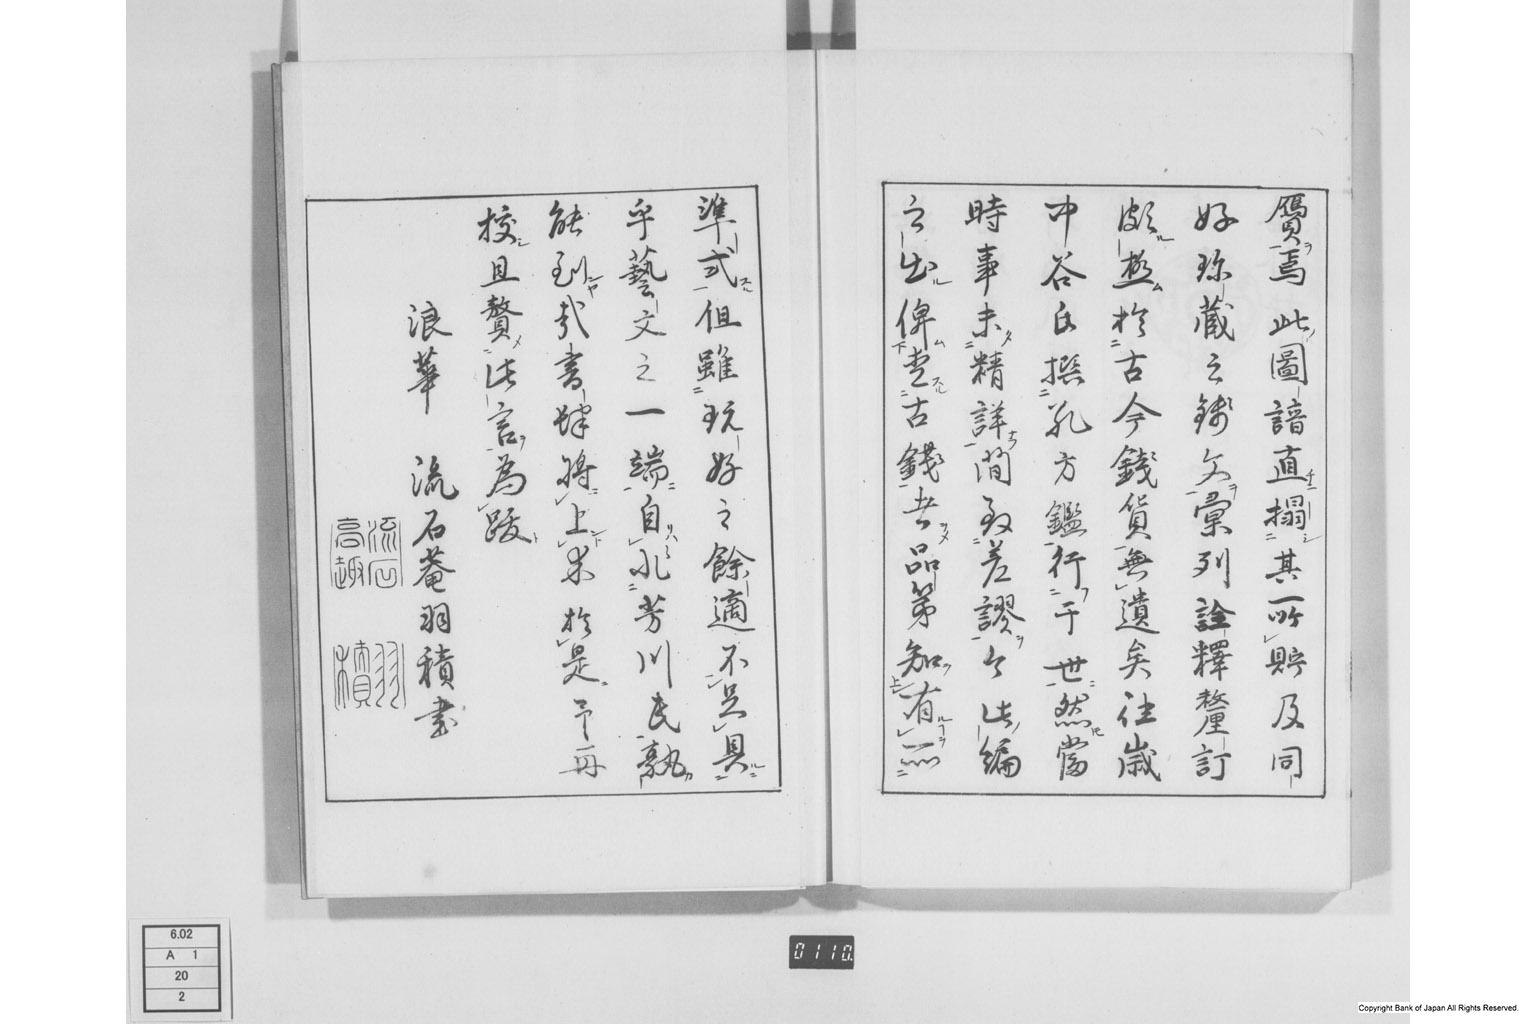 贋焉此圖譜直搨其所貯及同
好珎蔵之錢文彙列詮釋釐訂
頗極於古今錢貨無遺矣往歳
中谷氏撰孔方鑑行于世然當
時事未精詳間致差謬今此編
之出俾愛古錢者品第知有所
準式但雖玩好之餘適不足具
乎藝文之一端自非芳川氏孰
能到哉書肆将上木於是予再
校且贅此言為跋
浪華 流石菴羽積書
流石高趣
羽積
6.02
A 1
20
2
0110.
Copyright Bank of Japan All Rights Reserved.